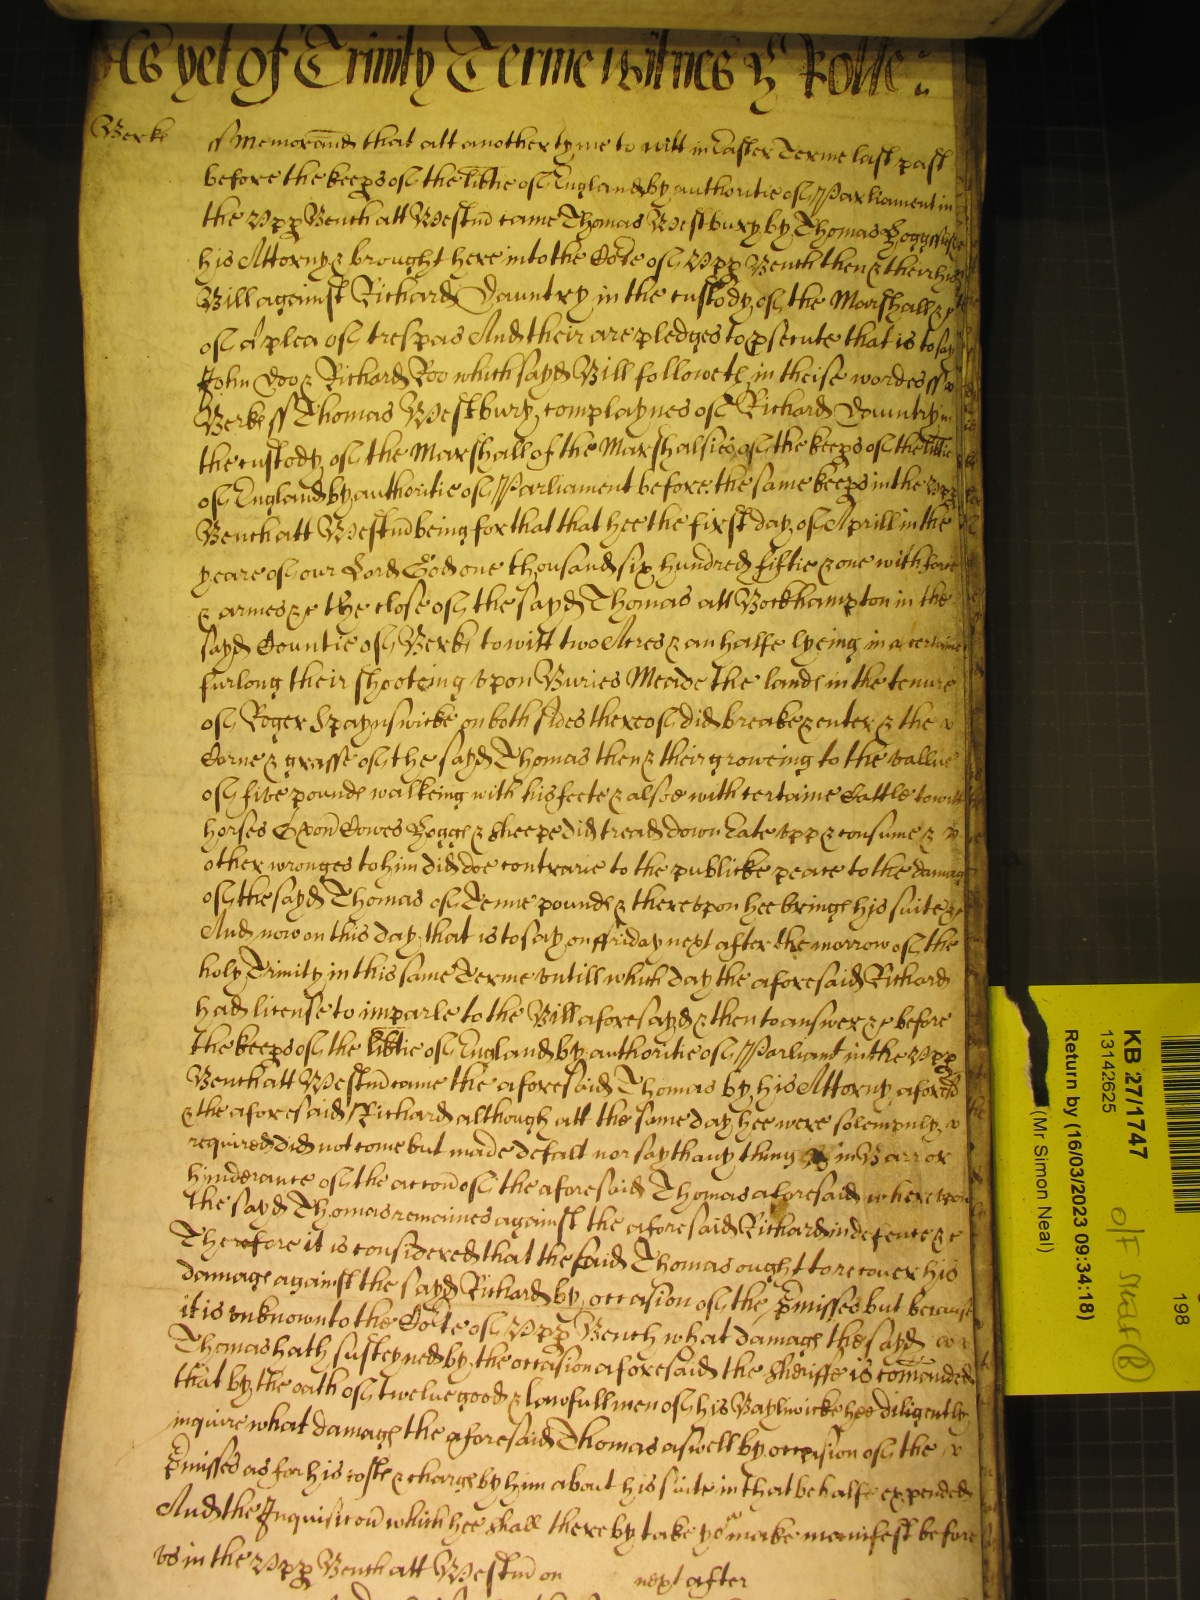 As yet of Trinity Terme Witnes H Rolle
Berks
ss Memorand that att another tyme to witt in Easter Terme last past
before the keeps of the libtie of England by authoritie of Parliament in
the Upp Bench att Westm came Thomas Westbury by Thomas
his Attorny & brought here into the Corte of Upp Bench then & their his
Bill against Richard Dauntry in the custody of the Marshall &c
of A plea of trespas And their are pledges to psecute that is to say
John Doo & Richard Roo which sayd Bill followeth in theise wordes ss
Berks ss Thomas Westbury complaynes of Richard Dauntry in
the custody of the Marshall of the Marshalsies of the keeps of the libtie
of England by authoritie of Parliament before the same keeps in the Upp
Bench att Westm being for that that hee the first day of Aprill in the
yeare of our Lord God one thousand six hundred fiftie & one with force
& armes &c the close of the sayd Thomas att Bockhampton in the
sayd Countie of Berks to witt two Acres & an halfe lyeing in a certaine
furlong their shooteing upon Buries Meade the lands in the tenure
of Roger Spaynswicke on both sides thereof did breake & enter & the
Corne & grasse of the sayd Thomas then & their groweing to the vallue
of five pounds walkeing with his feete & alsoe with certaine Cattle to witt
horses Oxon Cowes hoggs & sheepe did tread down Eate upp & consume &
other wronges to him did doe contrarie to the publicke peace to the damage
of the sayd Thomas of Tenne pounds & thereupon hee brings his suite &c
And now on this day that is to say on ffriday next after the morrow of the
holy Trinity in this same Terme untill which day the aforesaid Richard
had license to imparle to the Bill aforesayd & then to answer &c before
the keeps of the libtie of England by authoritie of Parliamt in the Upp
Bench att Westm came the aforesaid Thomas by his Attorny aforesd
& the aforesaid Richard although att the same day hee were solempnly
required did not come but made defalt nor sayth any thing in Barr or
hynderance of the accon of the aforesaid Thomas aforesaid whereupon
the sayd Thomas remaines against the aforesaid Richard in defence &c
Therefore it is considered that the said Thomas ought to recover his
damage against the sayd Richard by occasion of the pmisses but because
it is unknown to the Corte of Upp Bench what damage the sayd
Thomas hath susteyned by the occasion aforesaid the sheriffe is comanded
that by the oath of twelve good & lawfull men of his Baylywicke hee diligently
inquire what damage the aforesaid Thomas aswell by occasion of the
pmisses as for his costs & charges by him about his suite in that behalfe expended
And the Inquisicon which hee shall thereby take make manifest before
us in the Upp Bench att Westm on next after
KB 27/1747
13142625
Return by (16/03/2023 09:34:18)
(Mr Simon Neal)
198